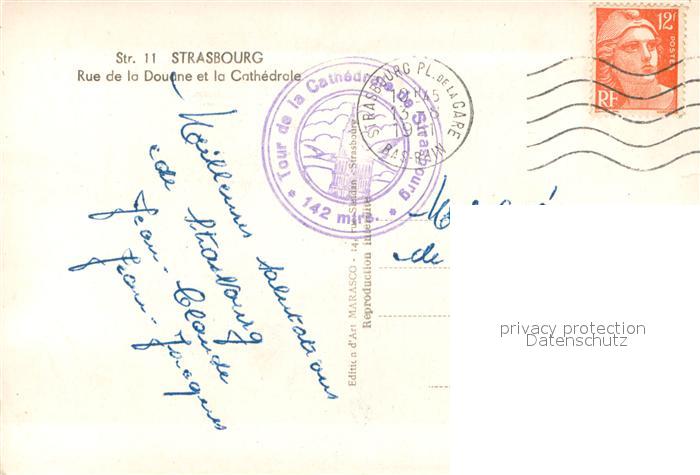 Str. 11 STRASBOURG
Rue de la Douane et la Cathédrale
Tour de la Cathédrale De Strasbourg
* 142 mtrs. *
STRASBOURG PL. DE LA GARE
BAS-RHIN
12f
POSTES
RF
Meilleures salutations
de Strasbourg
Jean-Claude
Jean-Jacques
Edition d'Art MARASCO - Strasbourg
Reproduction interdite
de
privacy protection
Datenschutz